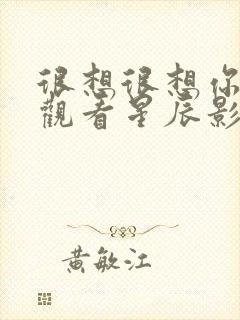 很想很想你
觀看星辰影
黃敏江